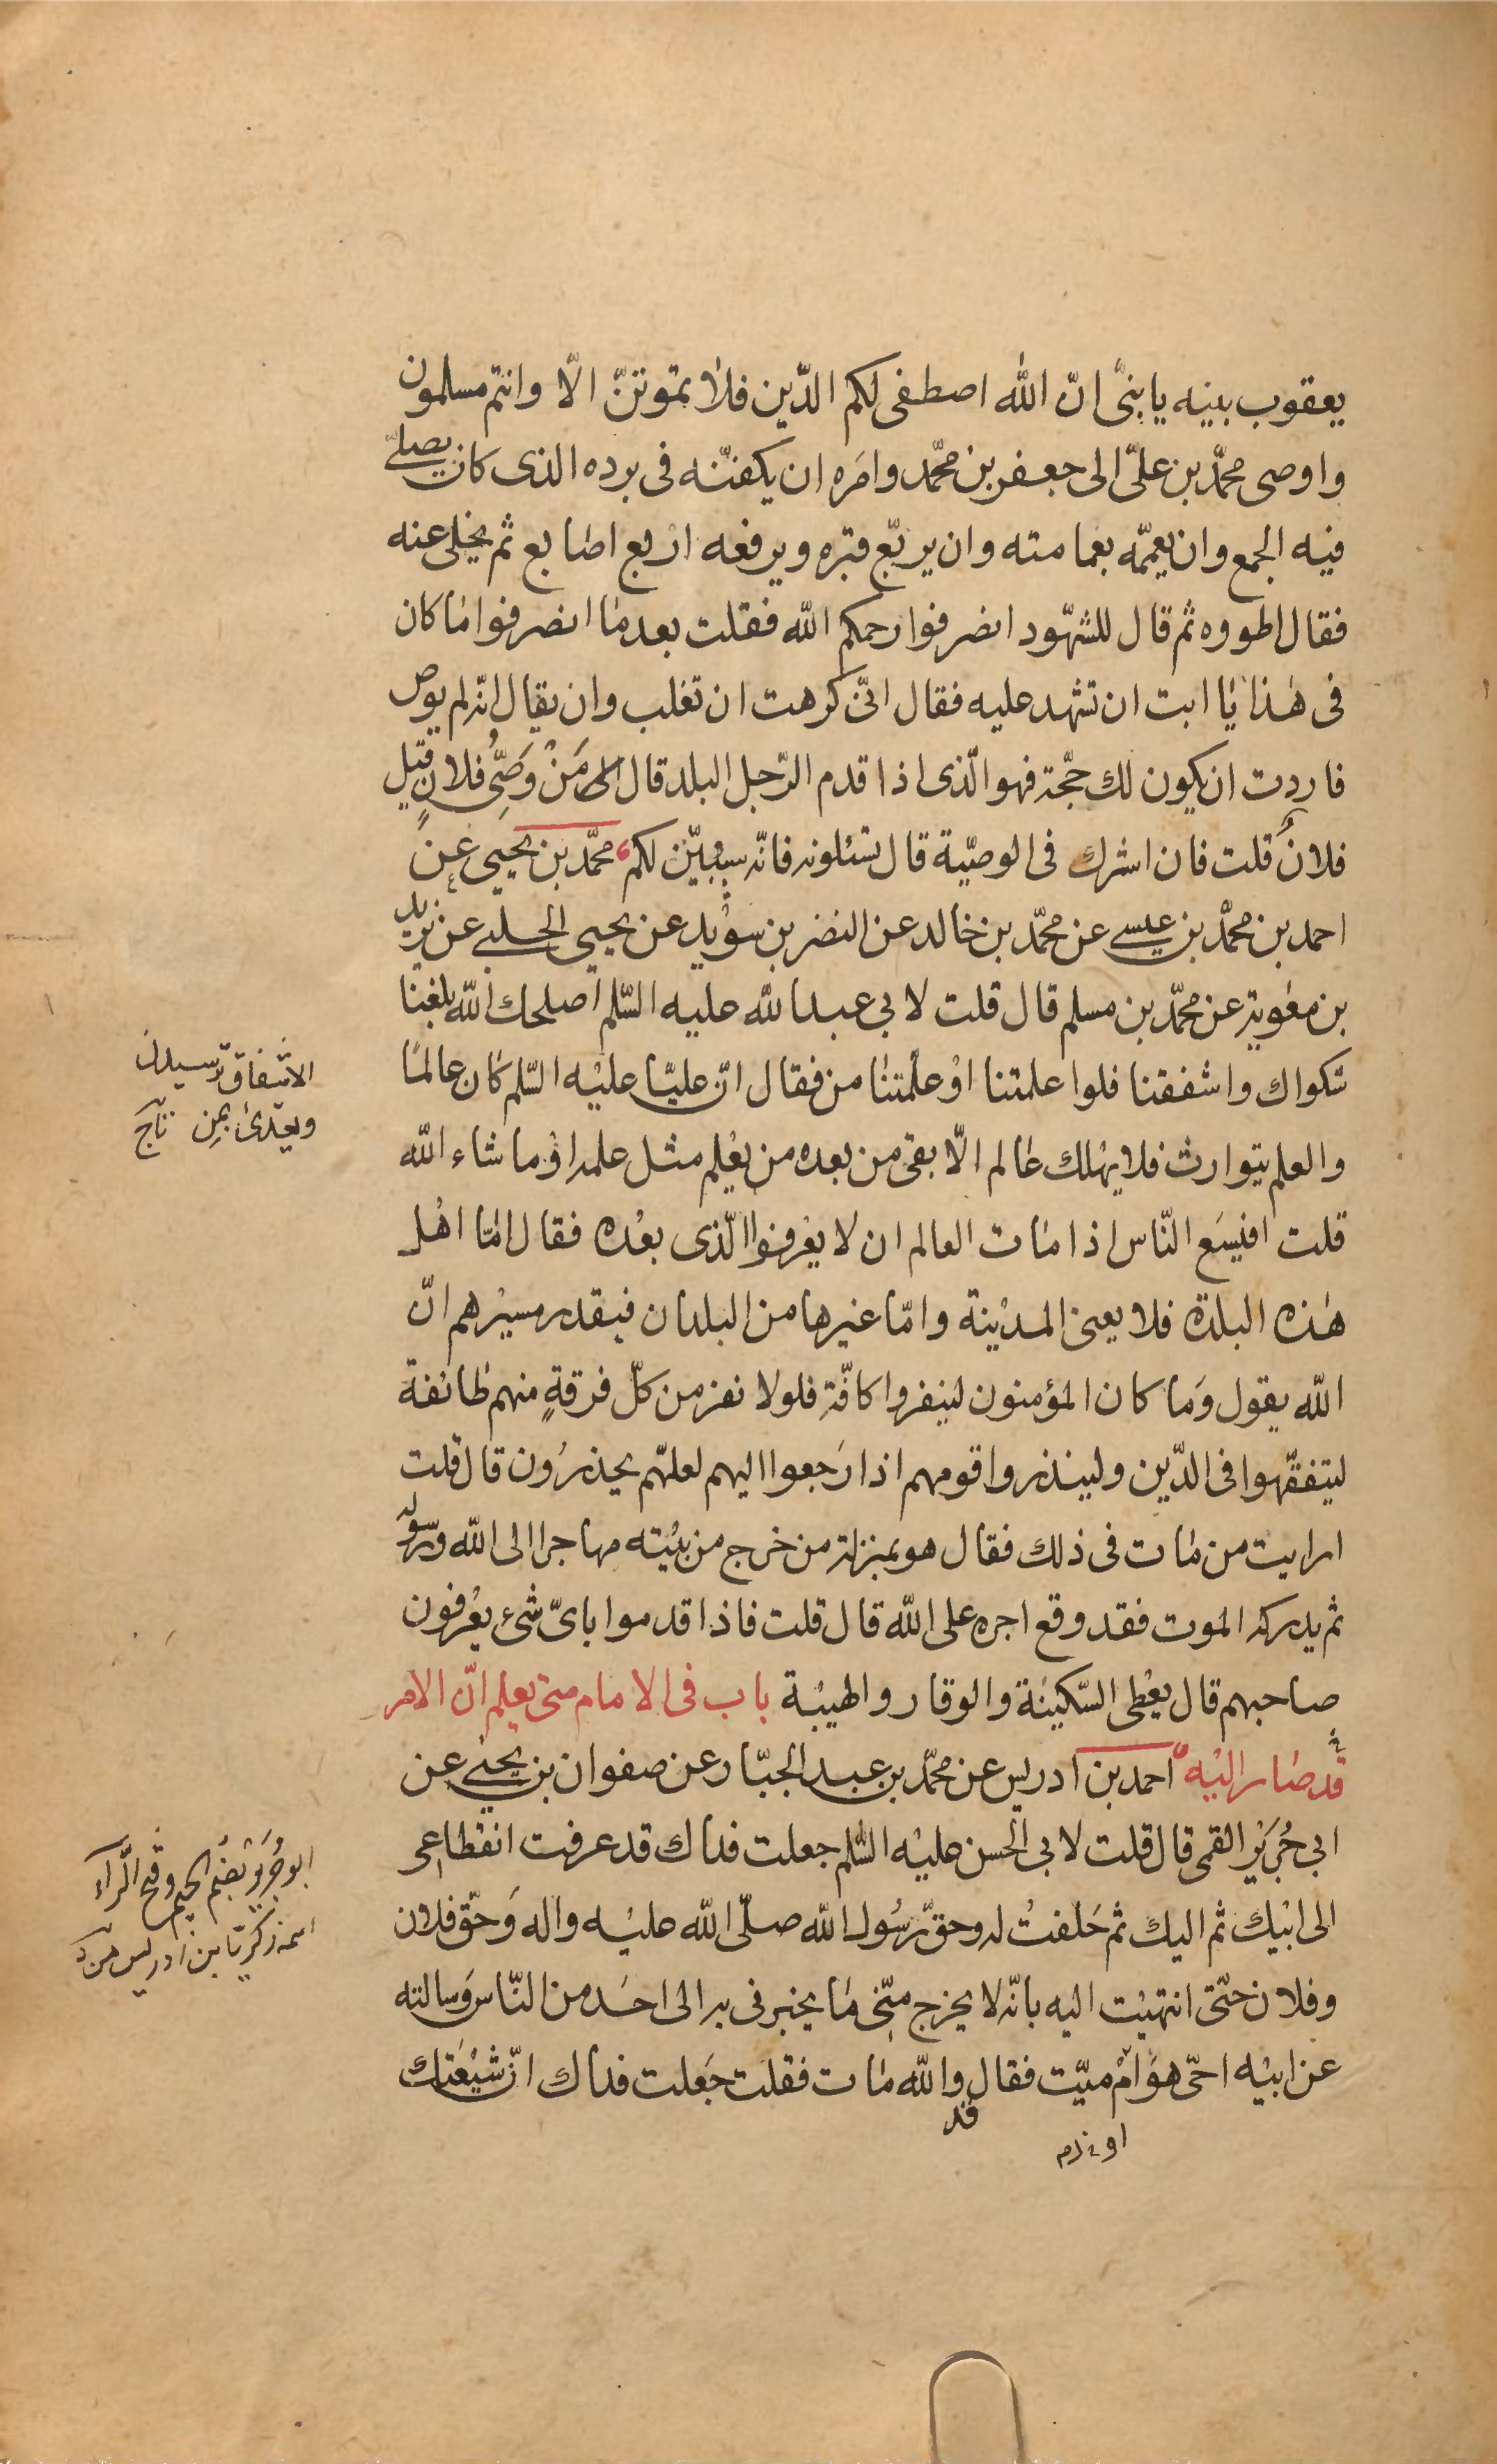 يعقوب بنيه يا بنىّ انّ الله اصطفى لكم الدّين فلا تموتنّ الّا وانتم مسلمون
واوصى محمّد بن علىّ الى جعفر بن محمّد وامَره ان يكفنّه فى برده الذى كان يصلّے
فيه الجمع وان يعمّمه بعمامته وان يربّع قبره ويرفعه اربع اصابع ثم يخلى عنه
فقال اطووه ثم قال للشهّود انصرفوا رحمكم الله فقلت بعد ما انصرفوا ما كان
فى هٰذا يا ابت ان تشهد عليه فقال انّى كرهت ان تغلب وان يقال انّه لم يوص
فاردت ان يكون لك حجّة فهو الّذى اذا قدم الرّجل البلد قال الى مَنْ وَصِّى فلان قيل
فلانٌ قلت فان اشرك فى الوصيّة قال تسئلونه فانّه سيبيّن لكم محمّد بن يحيى عن
احمد بن محمّد بن عيسى عن محمّد بن خالد عن النضر بن سوُيد عن يحيى الحلبے عن بريد
بن معٰوية عن محمّد بن مسلم قال قلت لابى عبد الله عليه السّلم اصلحك الله بلغنا
شكواك واشفقنا فلوا علمتنا اوْ علّمتنٰا من فقال انّ عليّا عليْه السّلم كان عالمًا
والعلم يتوارث فلا يهلك عالم الّا بقى من بعده من يعْلم مثل علمه اوْ ما شاء الله
قلت افيسَع النّاس اذا مات العالم ان لا يعْرفوا الّذى بعْده فقال امّا اهْل
هٰذه البلدة فلا يعنى المديْنة وامّا غيرها من البلدان فبقدر مسيْرهم انّ
الله يقول وَما كان المؤمنون لينفروا كافّة فلولا نفر من كلّ فرقةٍ منهم طائفة
ليتفقّهوا فى الدّين ولينذروا قومهم اذا رَجعوا اليهم لعلّهم يحذرُون قال قلت
ارايت من مات فى ذلك فقال هو بمنزلة من خرج من بيْته مهاجرا الى الله ورسوله
ثم يدركه الموت فقد وقع اجره على الله قال قلت فاذا قدموا باىّ شىء يعْرفون
صاحبهم قال يعْطى السّكينة والوقار والهيبْة باب فى الامام متى يعلم انّ الامر
قد صار اليْه احمد بن ادريس عن محمّد بن عبد الجبّار عن صفوان بن يحيى عن
ابى جُرَيْر القمى قال قلت لابى الحسن عليْه السّلم جعلت فداك قد عرفت انقطاعى
الى ابيْك ثم اليك ثم حَلفتُ له وحقّ رسُول الله صلّى الله عليْه واله وَحقّ فلان
وفلان حتّى انتهيْت اليه بانّه لا يخرج منّى ما يخبرنى به الى احَد من النّاس وَسالته
عن ابيْه احىّ هوَ امْ ميّت فقال والله مات فقلت جَعلت فداك انّ شيْعَتك
قد
الاشفاق ترسيدن
ويعدّى بمن تاج
ابو جرير بضم الجيم وفتح الرآء
اسمه زكريّا بن ادريس